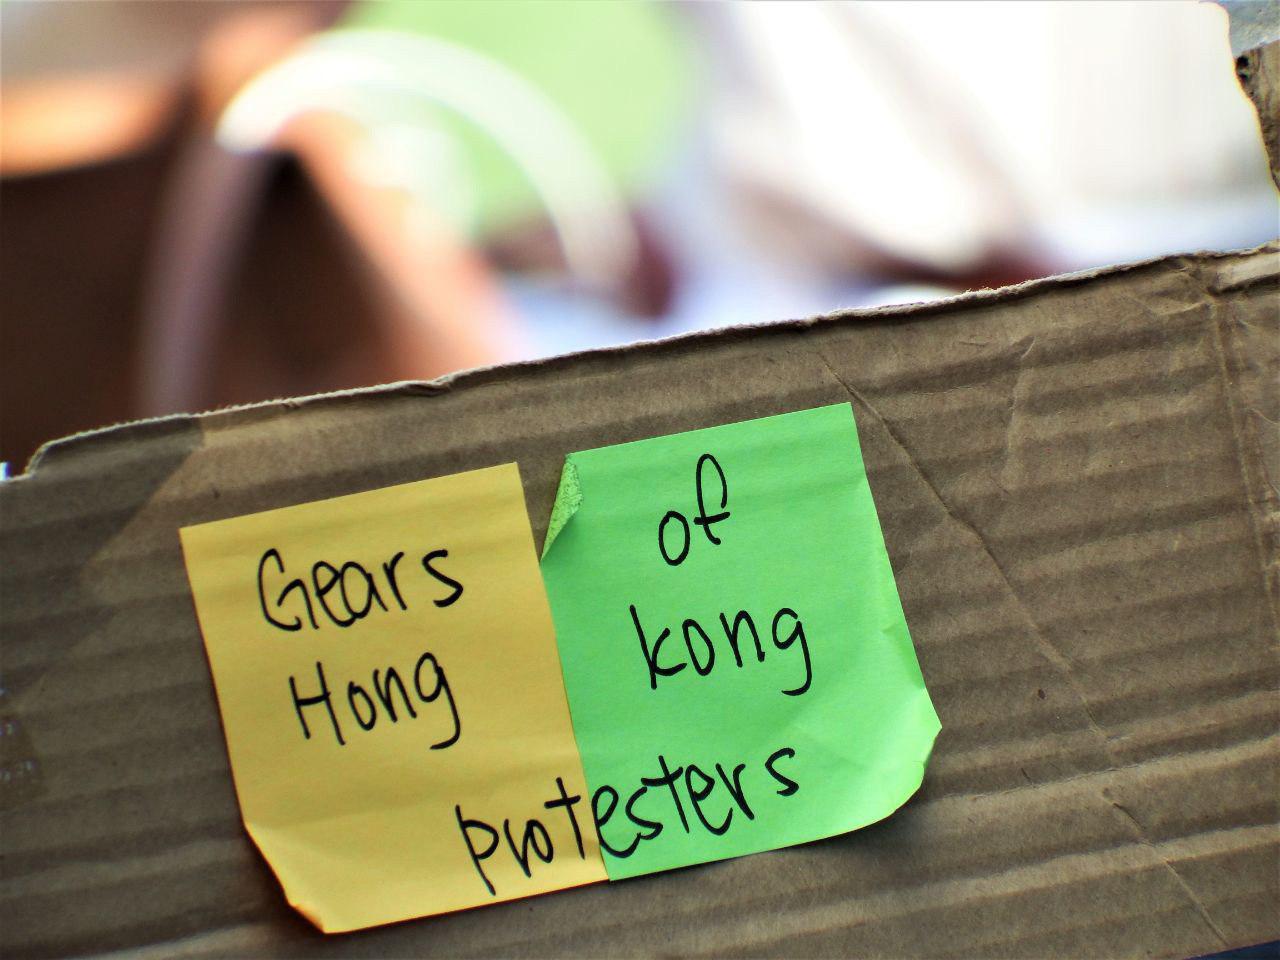 Gears of
Hong kong
protesters